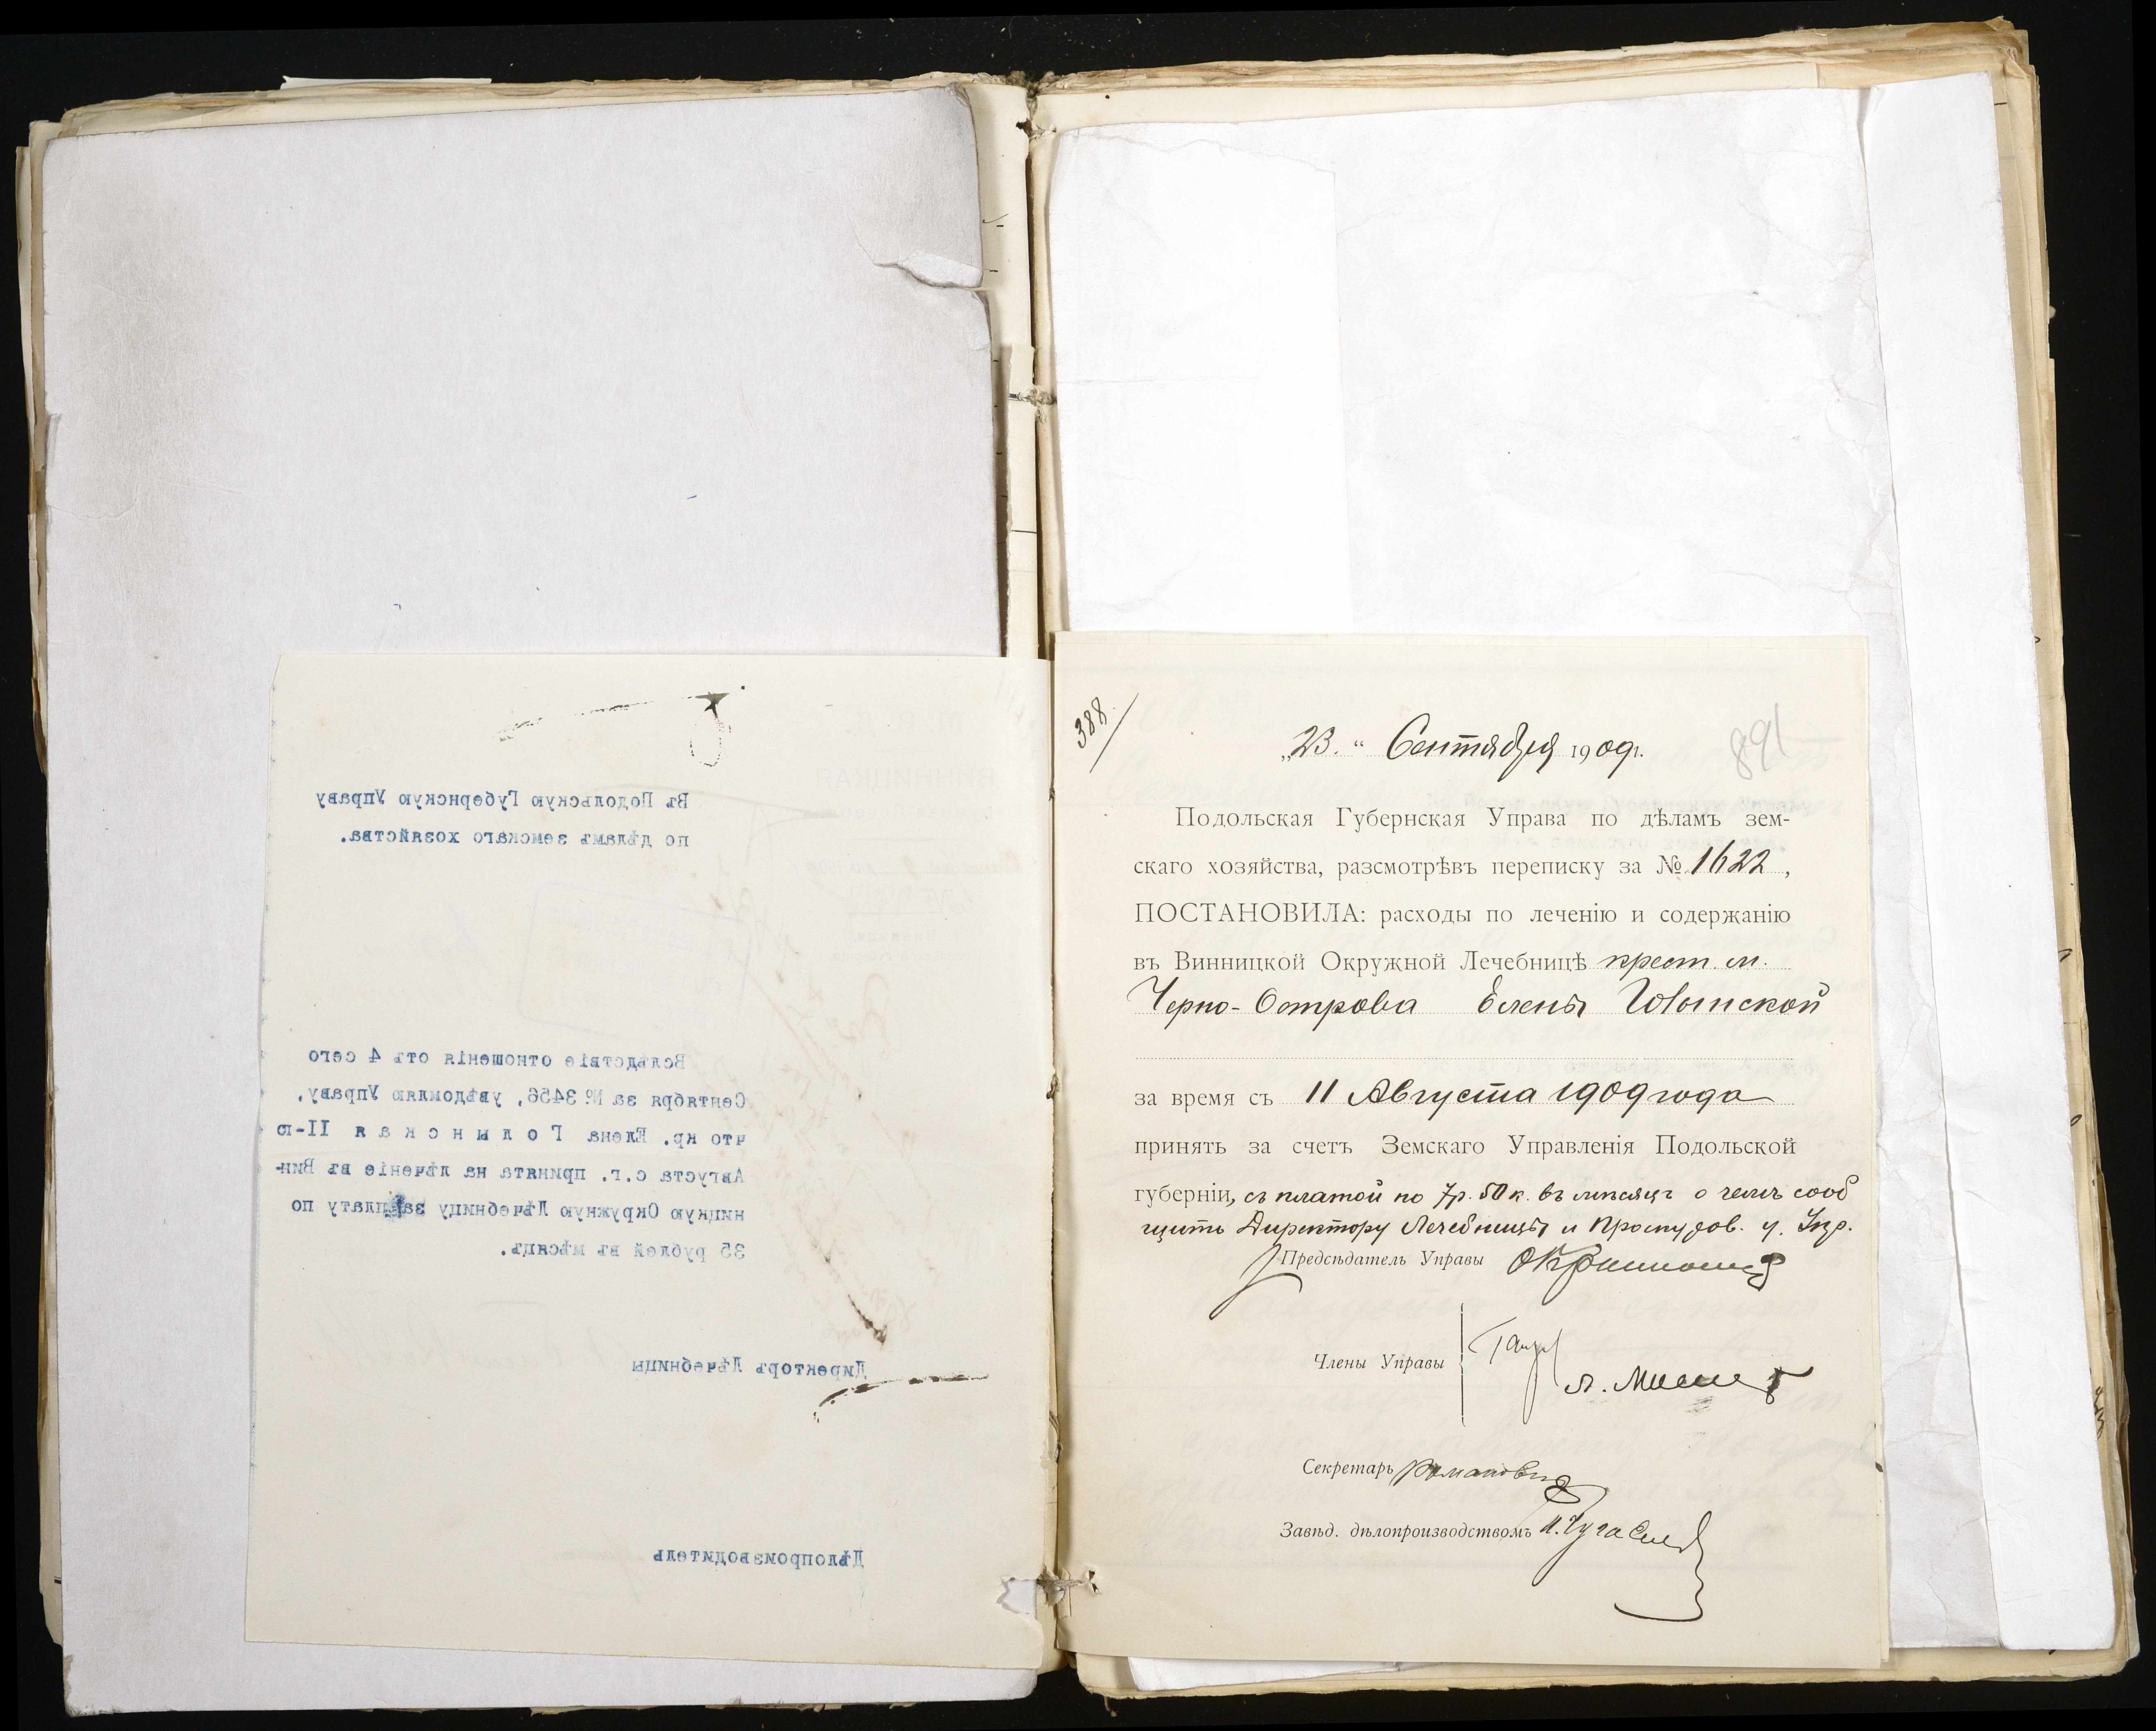 Въ Подольскую Губернскую Управу
по дѣламъ земскаго хозяйства.
Вслѣдствіе отношенія отъ 4 сего
Сентября за № 3456, увѣдомляю Управу,
что кр. Елена Голынская II-го
Августа с.г. принята на лѣченіе въ Вин-
ницкую Окружную Лѣчебницу за плату по
35 рублей въ мѣсяцъ.
Директоръ Лѣчебницы
Дѣлопроизводитель
388
891
„23.“ Сентября 1909г.
Подольская Губернская Управа по дѣламъ зем-
скаго хозяйства, разсмотрѣвъ переписку за № 1622,
ПОСТАНОВИЛА: расходы по леченію и содержанію
въ Винницкой Окружной Лечебницѣ крест. м.
Черно-Острова Елены Голынской
за время съ 11 Августа 1909 года
принять за счетъ Земскаго Управленія Подольской
губерніи, съ платой по 7р. 50к. въ мѣсяцъ о чемъ сооб
щить Директору Лечебницы и Проскуров. у. Упр.
Предсѣдатель Управы
Члены Управы
Секретарь Романович
Завѣд. дѣлопроизводствомъ